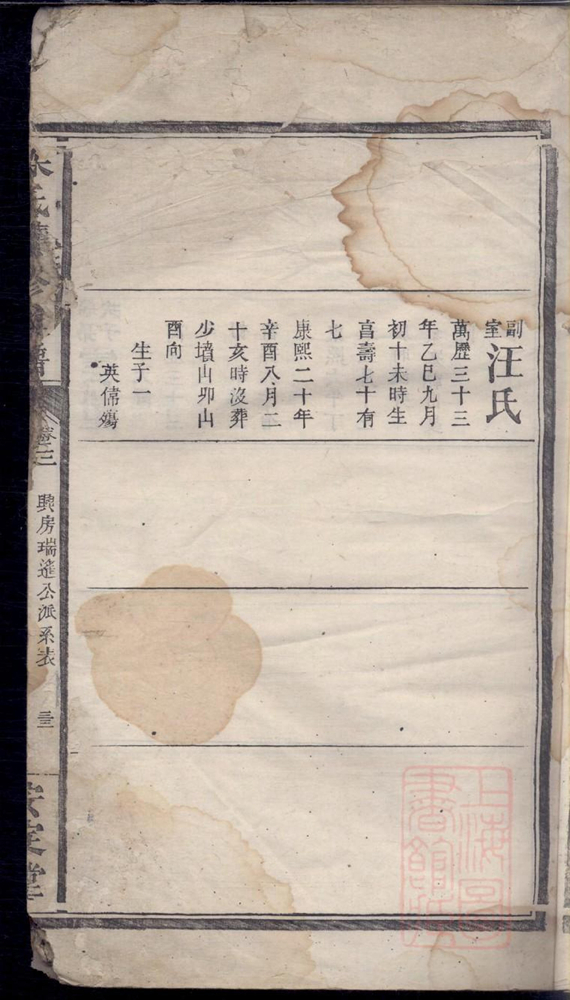 副室汪氏
萬歷三十三
年乙巳九月
初十未時生
亯壽七十有
七
康熙二十年
辛酉八月二
十亥時沒葬
少墳山卯山
酉向
生子一
英儒殤
卷三
興房瑞進公派系表
三
上海圖書館藏